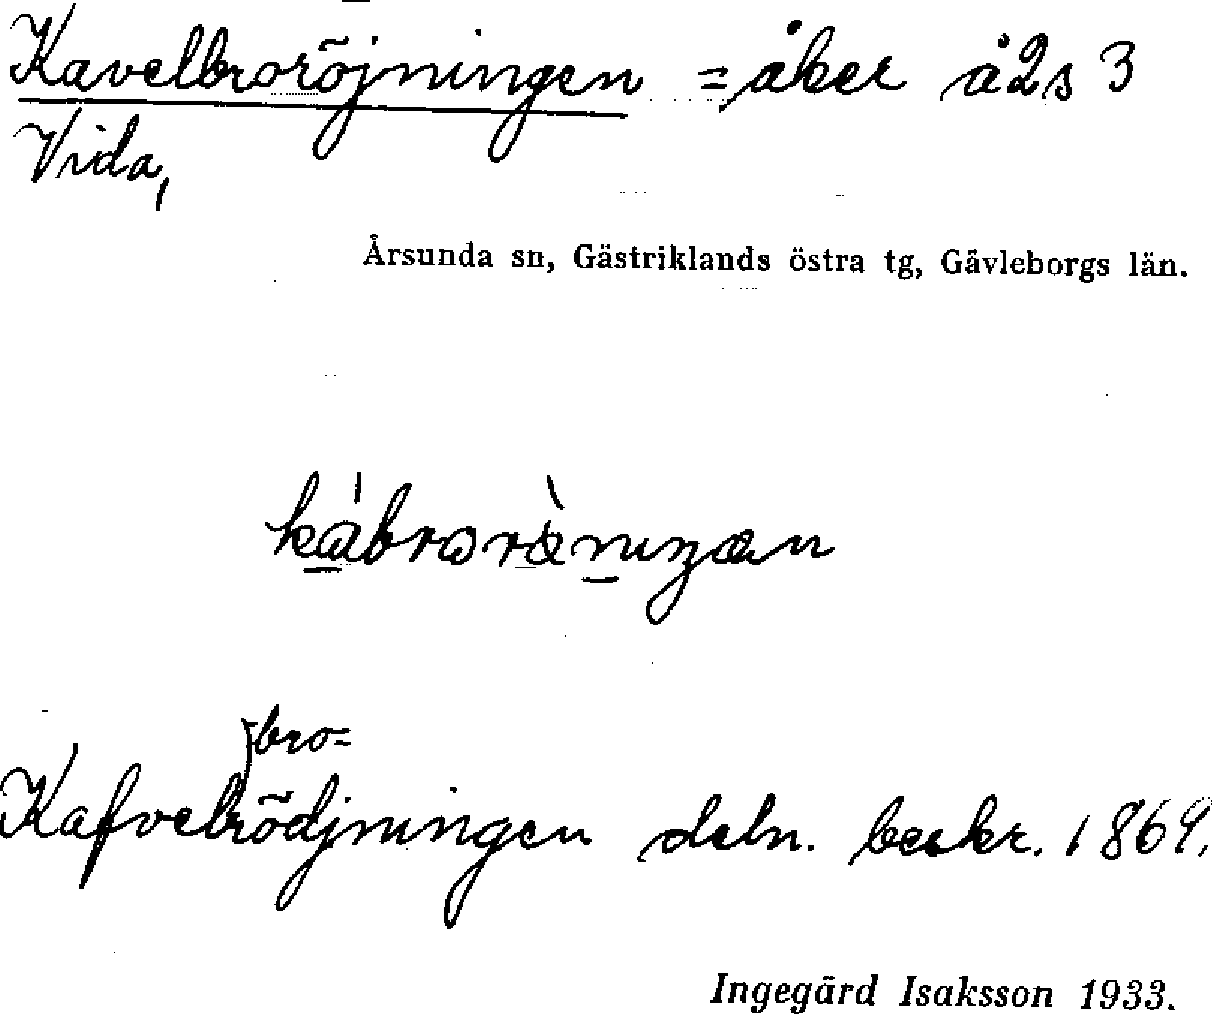 Kavelbroröjningen = åker å2s 3
Vida,
Årsunda sn, Gästriklands östra tg, Gävleborgs län.
bro=
Kafvelrödjningen deln. beskr. 1869.
Ingegärd Isaksson 1933.